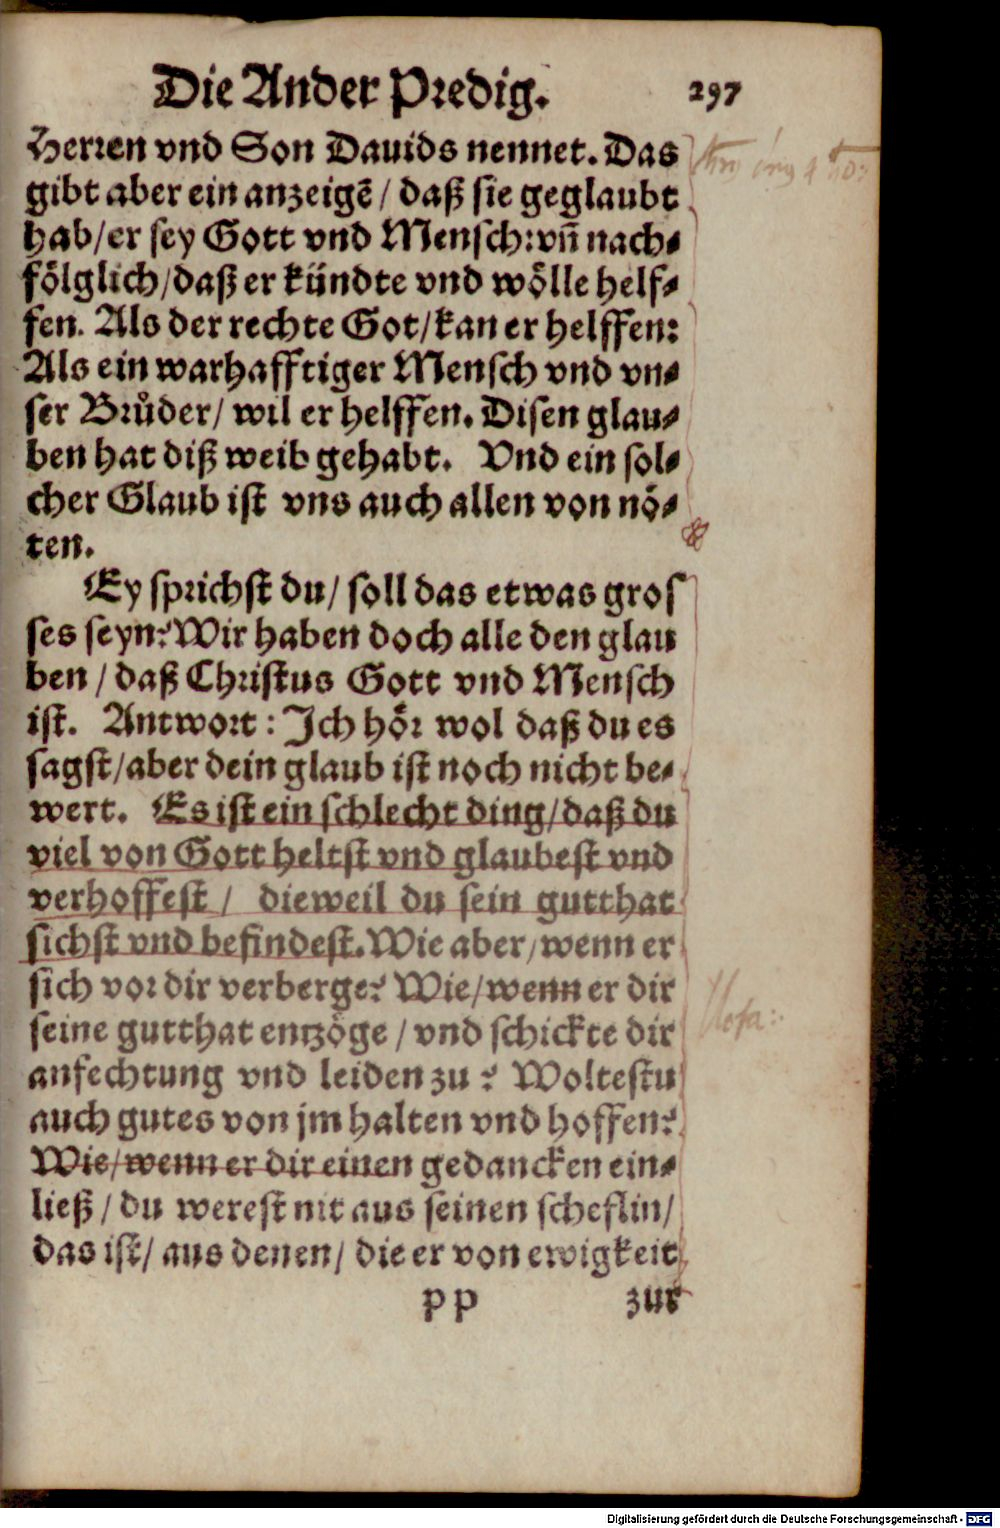 Die Ander Predig. 297
Herren vnd Son Dauids nennet. Das
gibt aber ein anzeigẽ / daß sie geglaubt
hab/er sey Gott vnd Mensch: vñ nach⸗
fölglich/daß er kündte vnd wölle helf⸗
fen. Als der rechte Got/kan er helffen:
Als ein warhafftiger Mensch vnd vn⸗
ser Brůder/ wil er helffen. Disen glau⸗
ben hat diß weib gehabt. Vnd ein sol⸗
cher Glaub ist vns auch allen von nö⸗
ten.
Ey sprichst du/ soll das etwas gros
ses seyn? Wir haben doch alle den glau
ben / daß Christus Gott vnd Mensch
ist. Antwort: Ich hör wol daß du es
sagst/aber dein glaub ist noch nicht be⸗
wert. Es ist ein schlecht ding/daß du
viel von Gott heltst vnd glaubest vnd
verhoffest / dieweil du sein gutthat
sichst vnd befindest. Wie aber/wenn er
sich vor dir verberge? Wie/wenn er dir
seine gutthat entzöge / vnd schickte dir
anfechtung vnd leiden zu? Woltestu
auch gutes von jm halten vnd hoffen?
Wie/wenn er dir einen gedancken ein⸗
ließ / du werest nit aus seinen scheflin/
das ist/ aus denen/ die er von ewigkeit
pp zur
Nota:
Digitalisierung gefördert durch die Deutsche Forschungsgemeinschaft - DFG